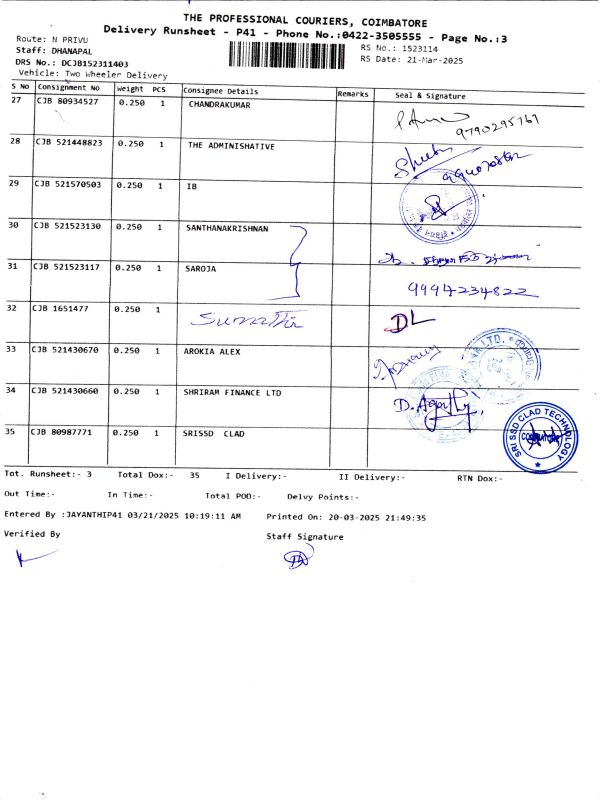 THE PROFESSIONAL COURIERS, COIMBATORE
Delivery Runsheet - P41 - Phone No.:0422-3505555 - Page No.:3
Route: N PRIVU
RS No.: 1523114
Staff: DHANAPAL
DRS No.: DCJB152311403
RS Date: 21-Mar-2025
Vehicle: Two Wheeler Delivery
S No Consignment No Weight PCS Consignee Details Remarks Seal & Signature
27 CJB 80934527 0.250 1 CHANDRAKUMAR
9790295761
28 CJB 521448823 0.250 1 THE ADMINISHATIVE
29 CJB 521570503 0.250 1 IB
30 CJB 521523130 0.250 1 SANTHANAKRISHNAN
31 CJB 521523117 0.250 1 SAROJA
9994234822
32 CJB 1651477 0.250 1 Sumathi DL
33 CJB 521430670 0.250 1 AROKIA ALEX
34 CJB 521430660 0.250 1 SHRIRAM FINANCE LTD
35 CJB 80987771 0.250 1 SRISSD CLAD
SRI SSD CLAD TECHNOLOGY
COIMBATORE
Tot. Runsheet:- 3 Total Dox:- 35 I Delivery:- II Delivery:- RTN Dox:-
Out Time:- In Time:- Total POD:- Delvy Points:-
Entered By :JAYANTHIP41 03/21/2025 10:19:11 AM Printed On: 20-03-2025 21:49:35
Verified By Staff Signature